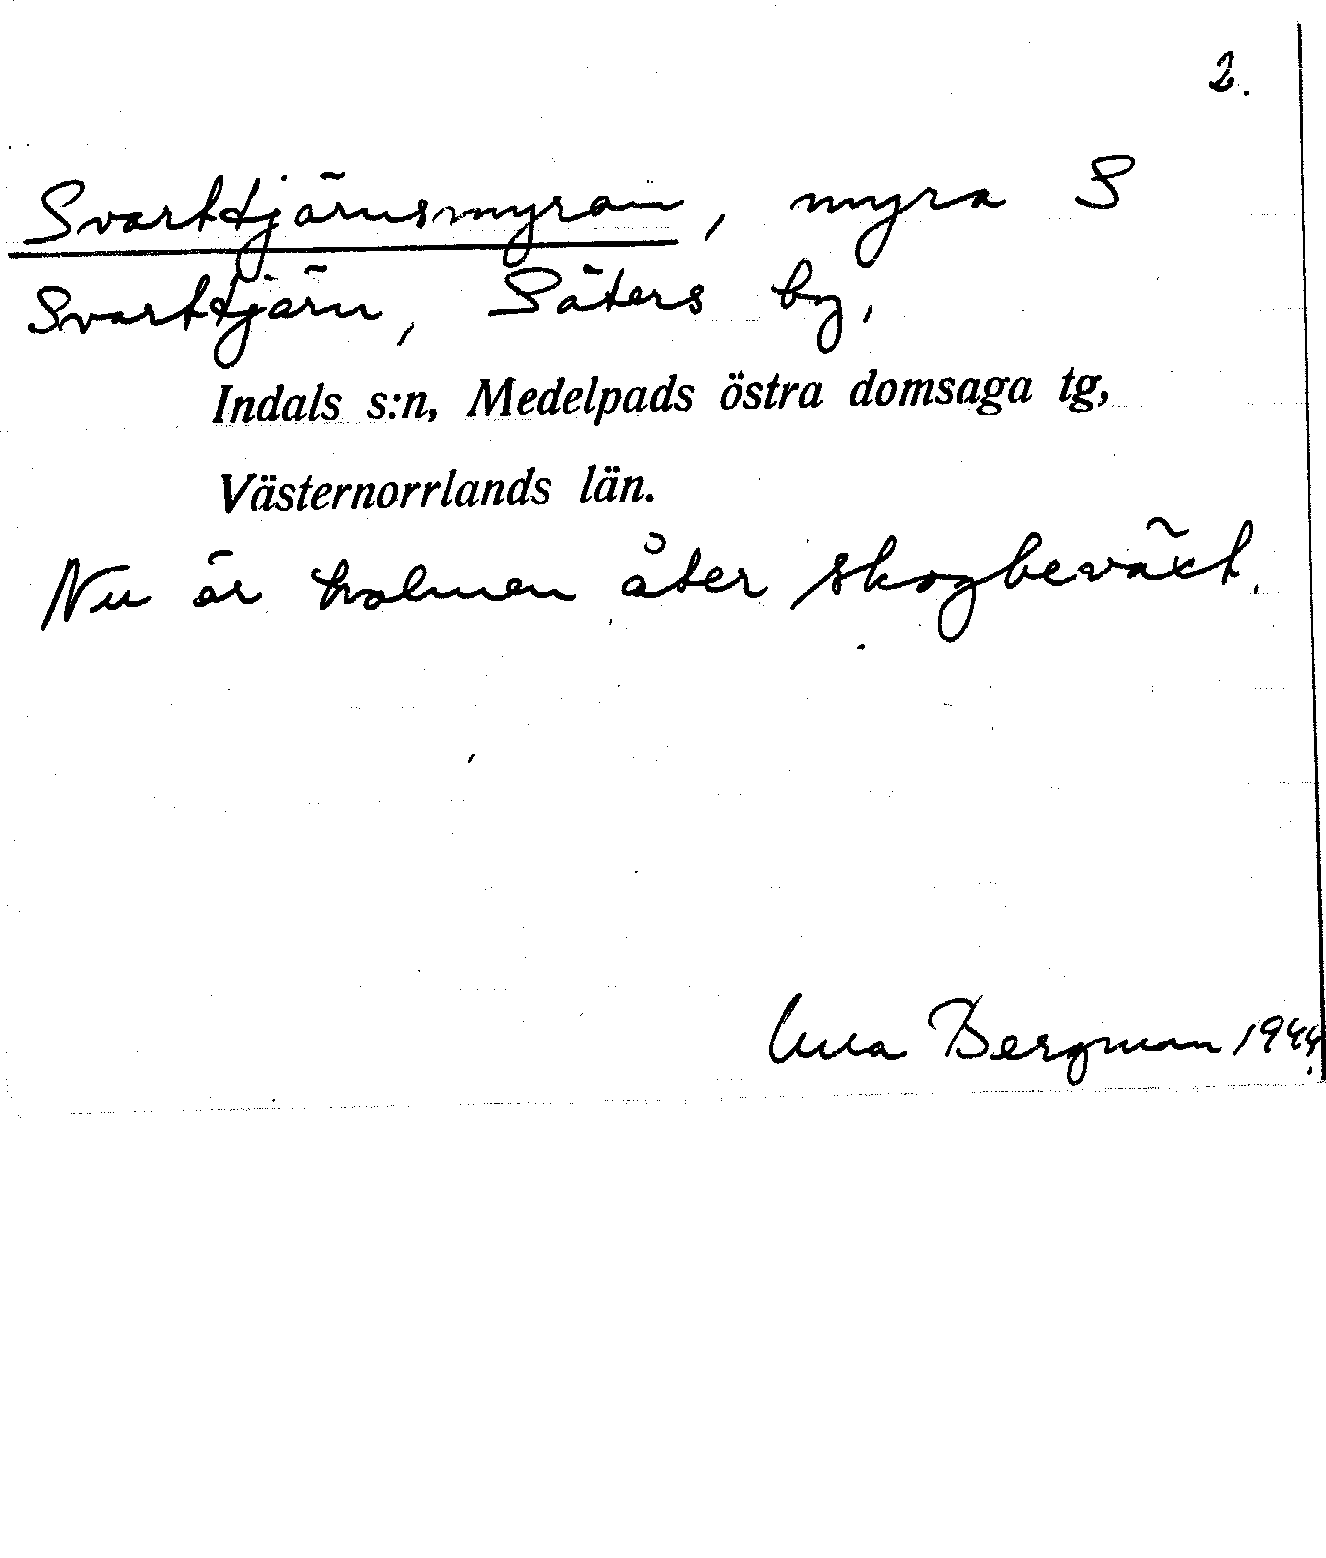 2.
Svarttjärnsmyran, myra S
Svarttjärn, Säters by,
Indals s:n, Medelpads östra domsaga tg,
Västernorrlands län.
Nu är holmen åter skogbeväxt.
Bergman 1944.